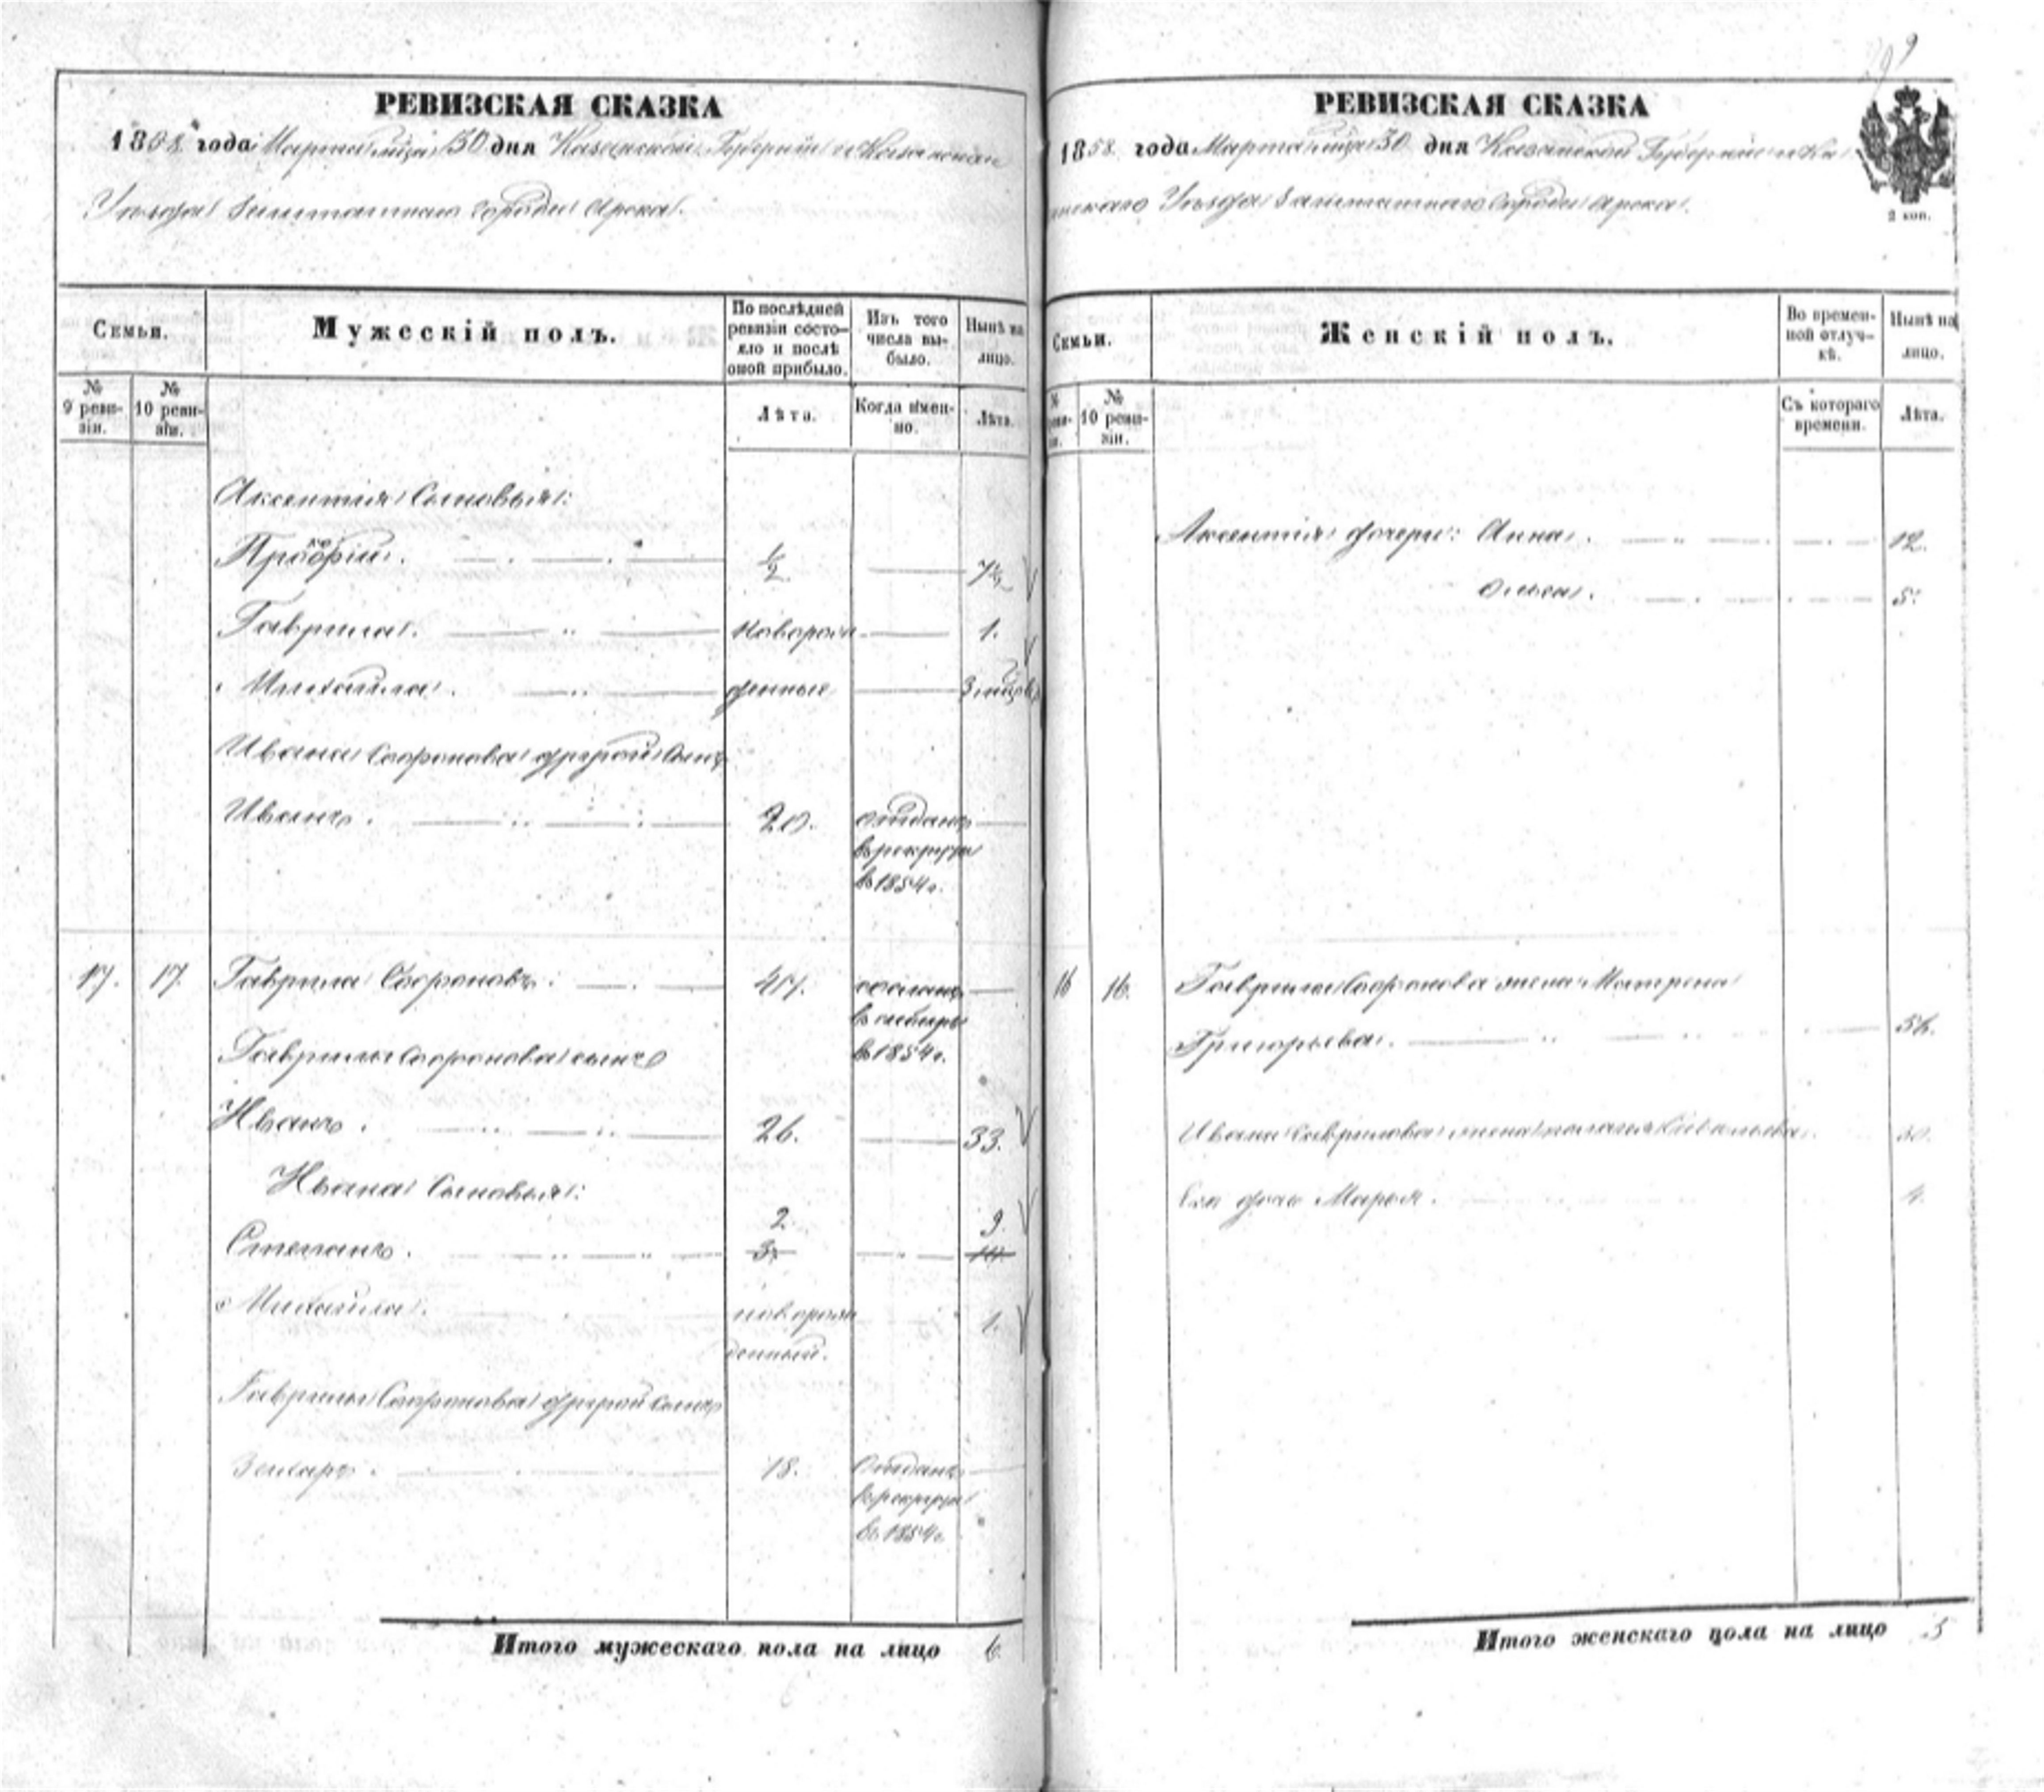 РЕВИЗСКАЯ СКАЗКА
1858 года Марта мца 30 дня Казанской Губернии и Казанскаго
Уѣзда Заштатнаго города Арска.
Семьи.
Мужескій полъ.
По послѣдней ревизіи состояло и послѣ оной прибыло.
Изъ того числа выбыло.
Нынѣ на лицо.
№ 9 ревизіи.
№ 10 ревизіи.
Лѣта.
Когда именно.
Лѣта.
Аксентія Сыновья:
Прокофій. ½ 7½
Гаврила. новорож 1.
Михайла. денные 3 мцов
Ивана Софронова другой Сынъ
Иванъ. 20. отданъ
в рекруты
в 1854 г.
17. 17. Гаврила Софроновъ. 47. сосланъ
в сибирь
Гаврилы Софронова сынъ в 1854 г.
Иванъ. 26. 33.
Ивана Сыновья:
2. 9.
Степанъ. 3.
Михайла. новорож 1.
денный.
Гаврилы Софронова другой Сынъ
18. Отданъ
в рекруты
в 1854 г.
Итого мужескаго пола на лицо 6.
РЕВИЗСКАЯ СКАЗКА
1858 года Марта мца 30 дня Казанской Губерніи и Ка
занскаго Уѣзда Заштатнаго города Арска.
2 коп.
Семьи.
Женскій полъ.
Во временной отлучкѣ.
Нынѣ на лицо.
№ 10 ревизіи.
Съ котораго времени.
Лѣта.
Аксентія дочери: Анна. 12.
5.
16 16. Гаврилы Софронова жена Матрена
Григорьева. 56.
Ивана Гаврилова жена 30.
Ея дочь Марья. 4.
Итого женскаго пола на лицо 5